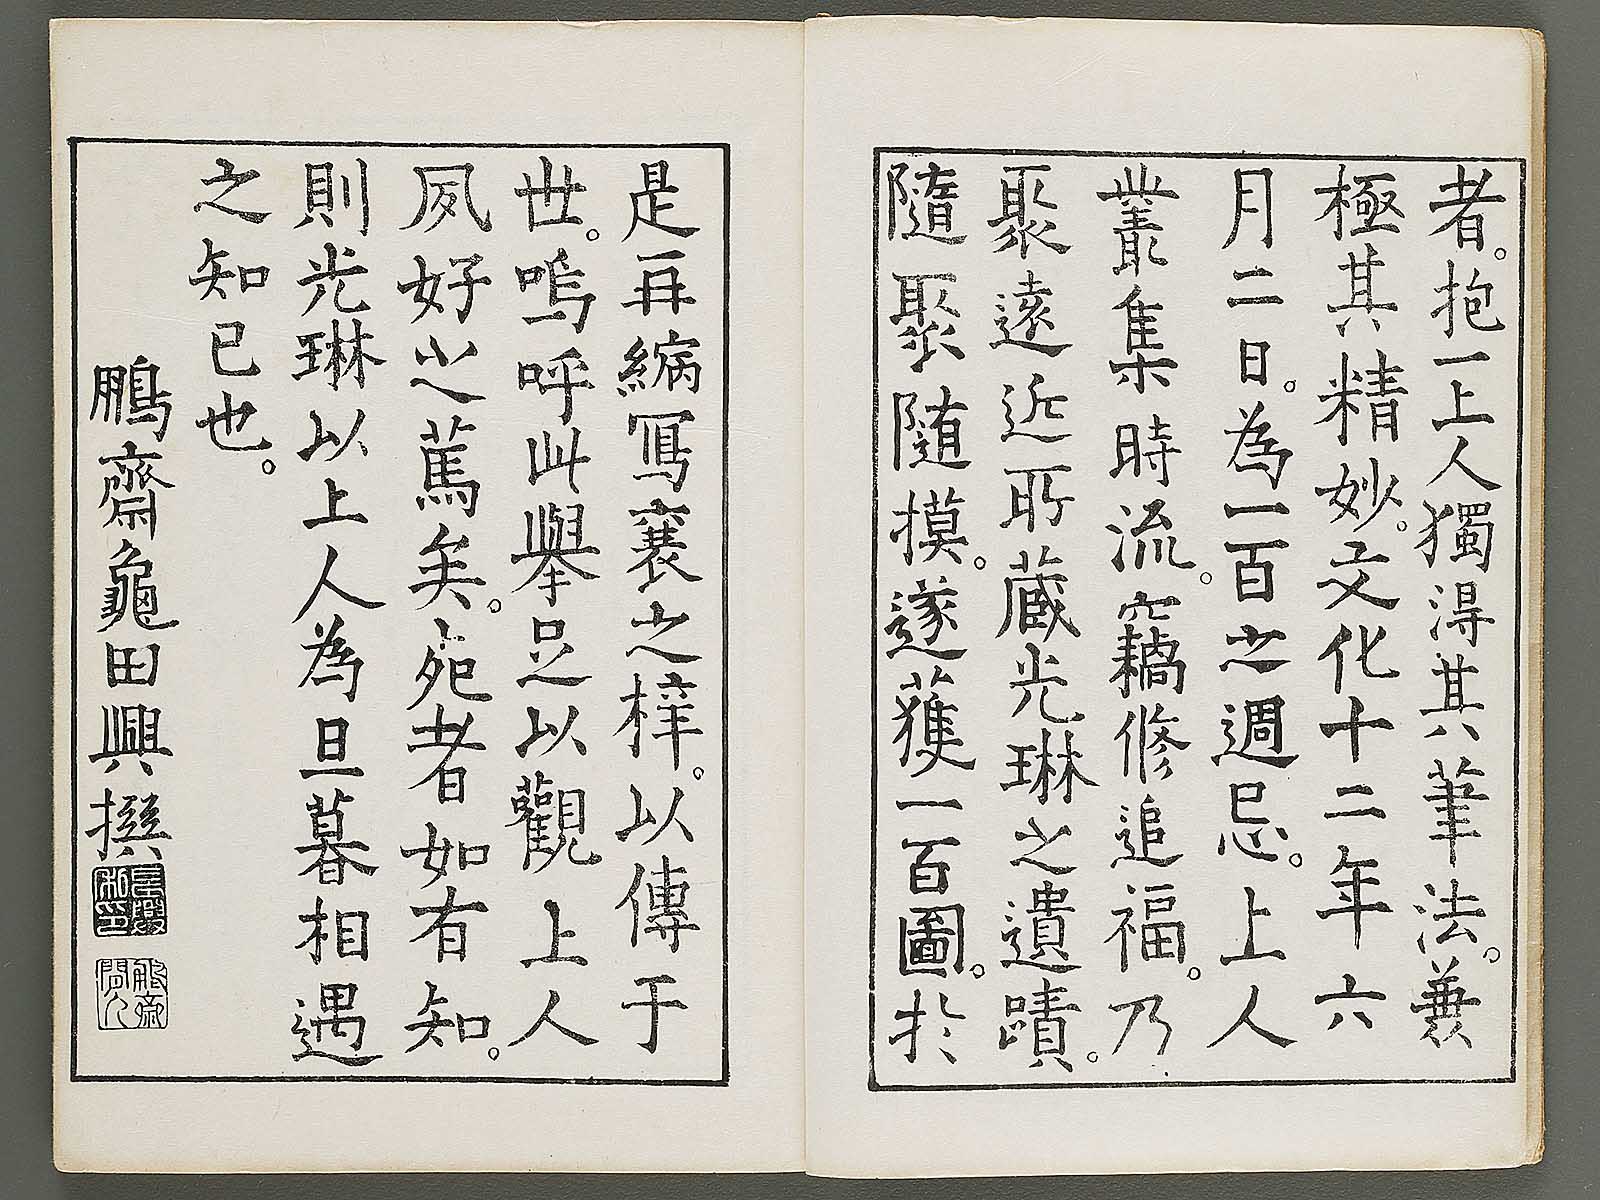 者。抱一上人獨得其筆法。兼
極其精妙。文化十二年六
月二日。為一百之週忌。上人
叢集時流。竊修追福。乃
聚遠近所蔵光琳之遺蹟。
隨聚隨摸。遂獲一百圖。於
是再縮寫褰之梓。以傳于
世。嗚呼此舉足以觀上人
夙好之篤矣。死者如有知。
則光琳以上人為旦暮相遇
之知已也。
鵬齋龜田興撰